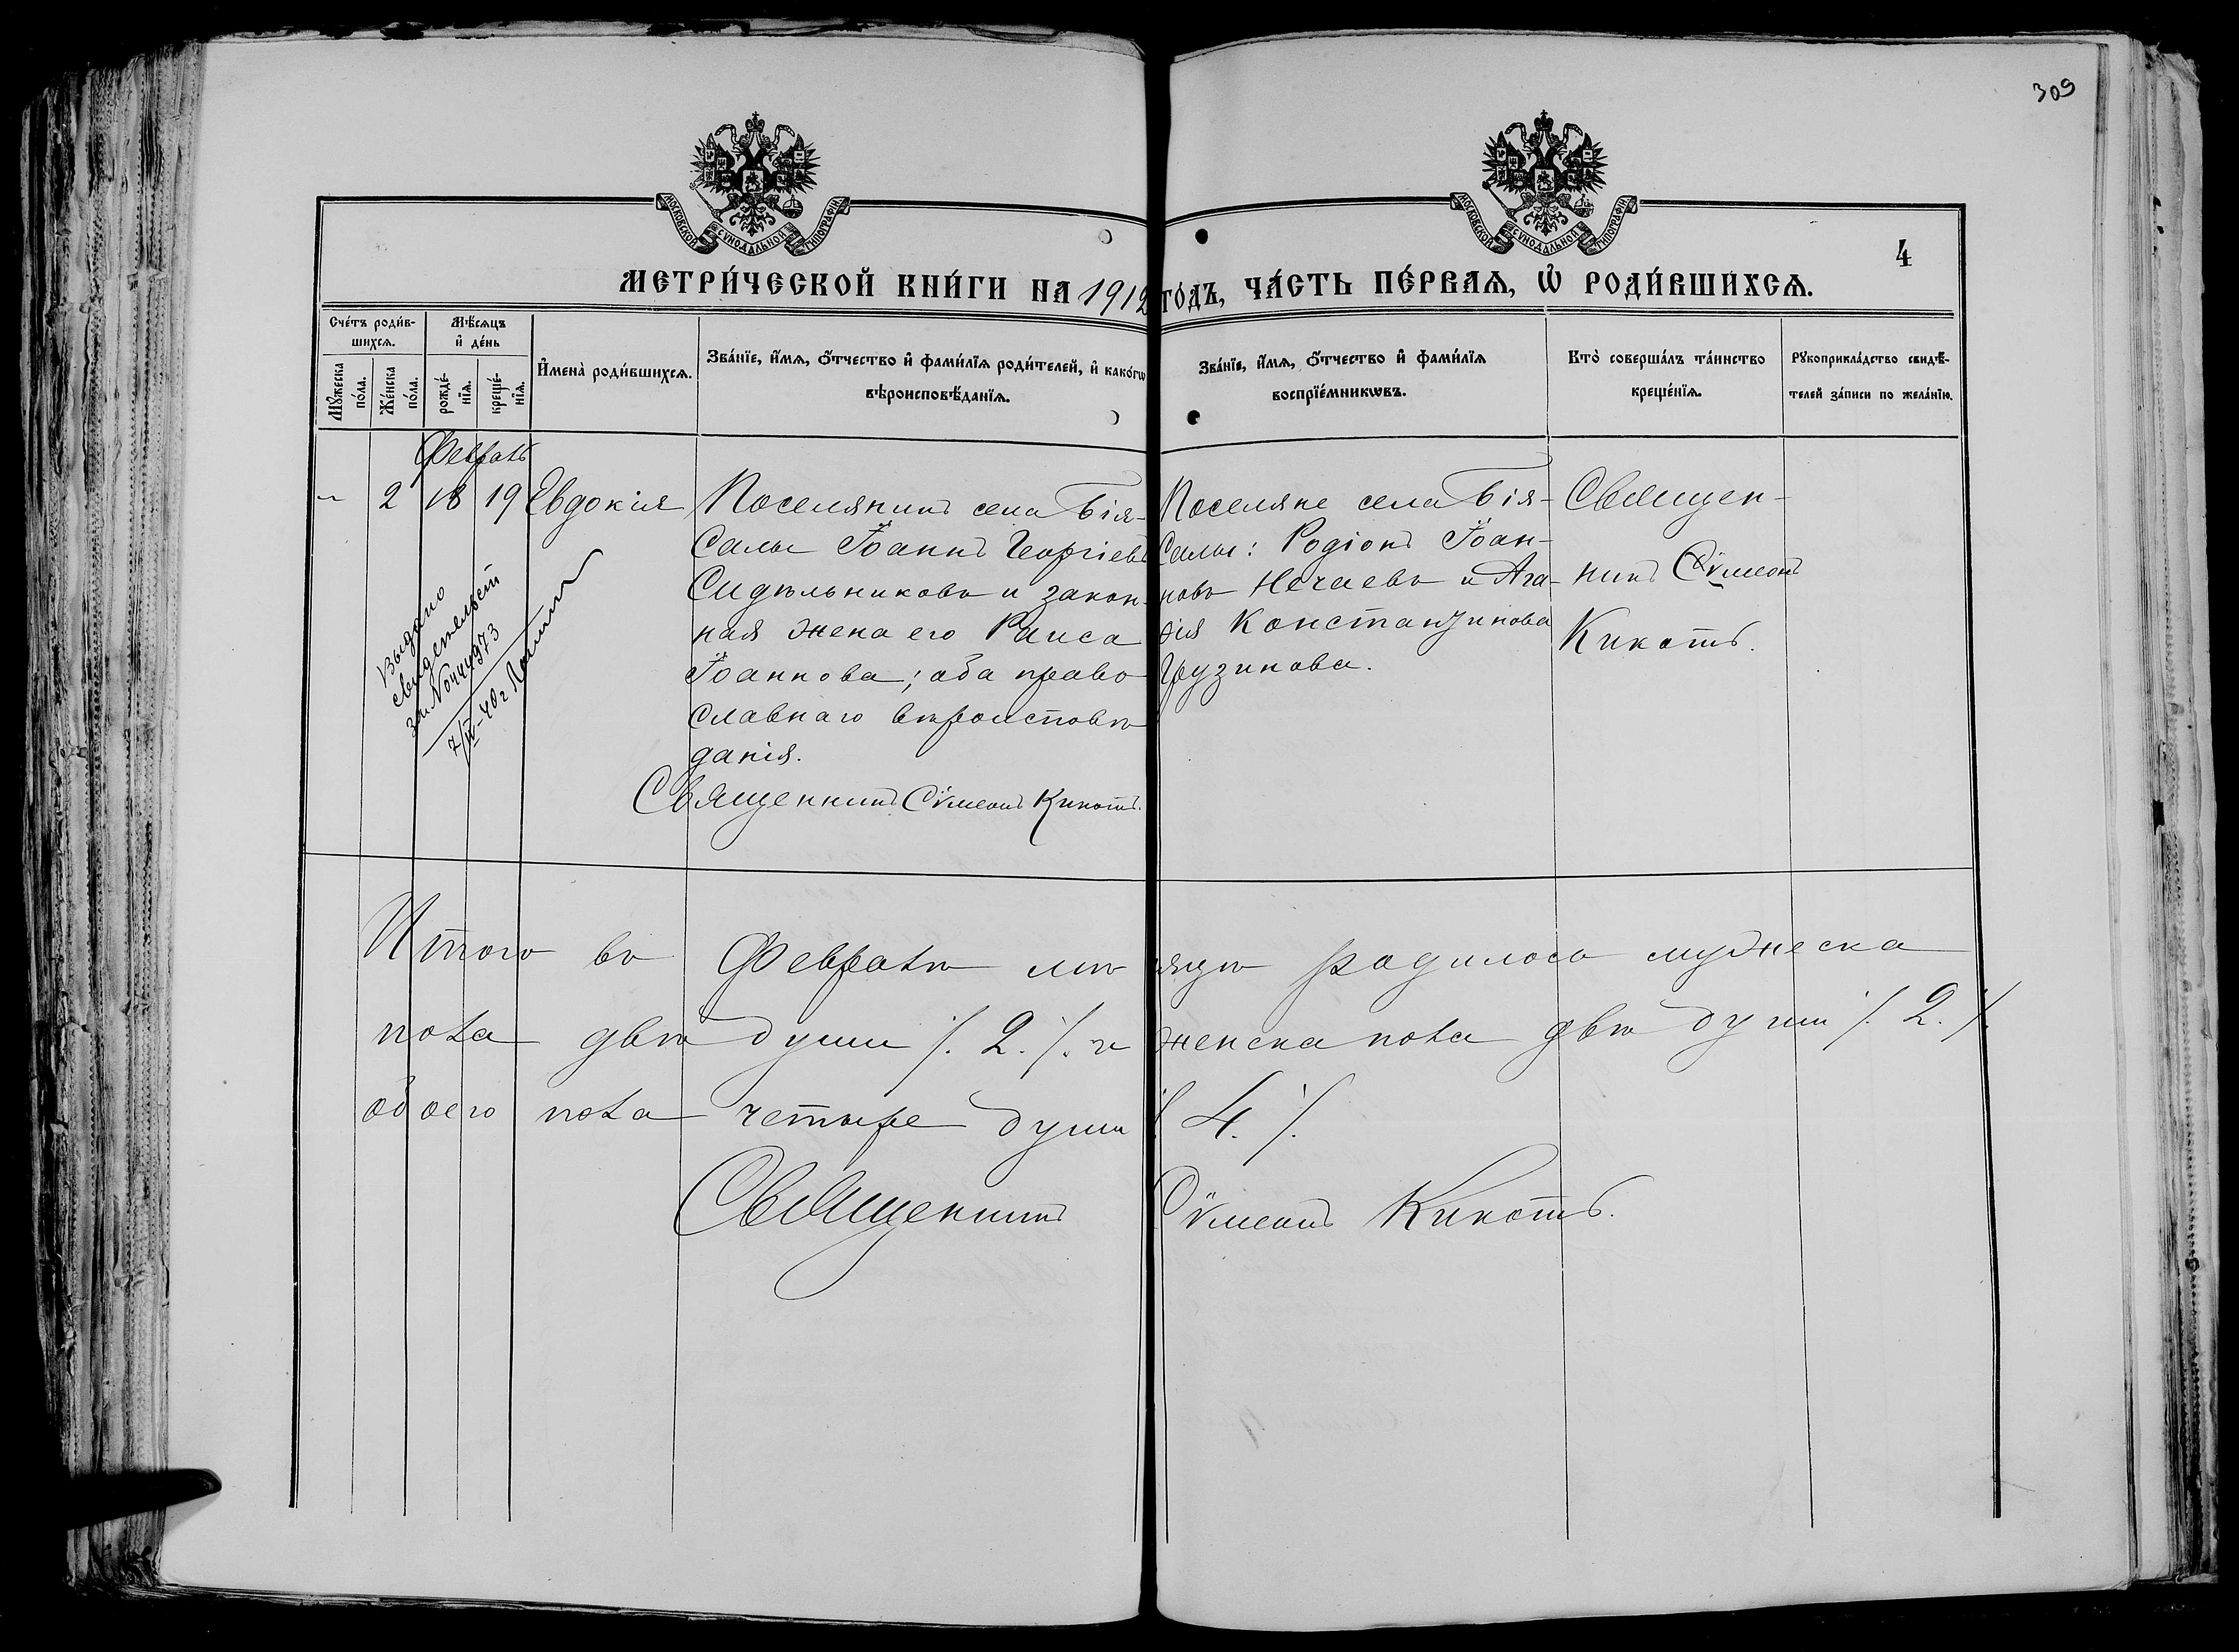 309
МОСКОВСКОЙ СѴНОДАЛЬНОЙ ТИПОГРАФІИ
МОСКОВСКОЙ СѴНОДАЛЬНОЙ ТИПОГРАФІИ
4
МЕТРИ́ЧЕСКОЙ КНИ́ГИ НА 1912 ГО́ДЪ, ЧА́СТЬ ПЕ́РВАѦ, Ѽ РОДИ́ВШИХСѦ.
Сче́тъ роди́в-
шихсѧ.
Мѣ́сѧцъ
и҆ де́нь
Мꙋ́жеска
по́ла.
Же́нска
по́ла.
рожде́-
нїѧ.
креще́-
нїѧ.
И҆мена̀ роди́вшихсѧ.
Зва́нїе, и҆́мѧ, ѻ҆́тчество и҆ фами́лїѧ роди́телей, и҆ како́гѡ
вѣроисповѣ́данїѧ.
Зва́нїе, и҆́мѧ, ѻ҆́тчество и҆ фами́лїѧ
воспрїе́мникѡвъ.
Кто̀ соверша́лъ та́инство
креще́нїѧ.
Рꙋкоприкла́дство свидѣ́-
телей за́писи по жела́нїю.
Февраль
- 2 18 19 Евдокія
Поселянинъ села Бія-
Салы Іоаннъ Георгіевъ
Сидѣльниковъ и закон-
ная жена его Раиса
Іоаннова; оба право
славнаго вѣроисповѣ
данія.
Священникъ Сѵмеонъ Кикоть.
Поселяне села Бія-
Салы: Родіонъ Іоан-
новъ Нечаевъ и Ага-
ѳія Константинова
Грузинова.
Священ-
никъ Сѵмеонъ
Кикоть.
Выдано
свидетельст
за № 044973
7/IV-40г
Итого въ Февралѣ мѣсяцѣ родилось мужеска
пола двѣ души /. 2. /. и женска пола двѣ души /. 2. /.
обоего пола четыре души /. 4. /.
Священникъ Сѵмеонъ Кикоть.